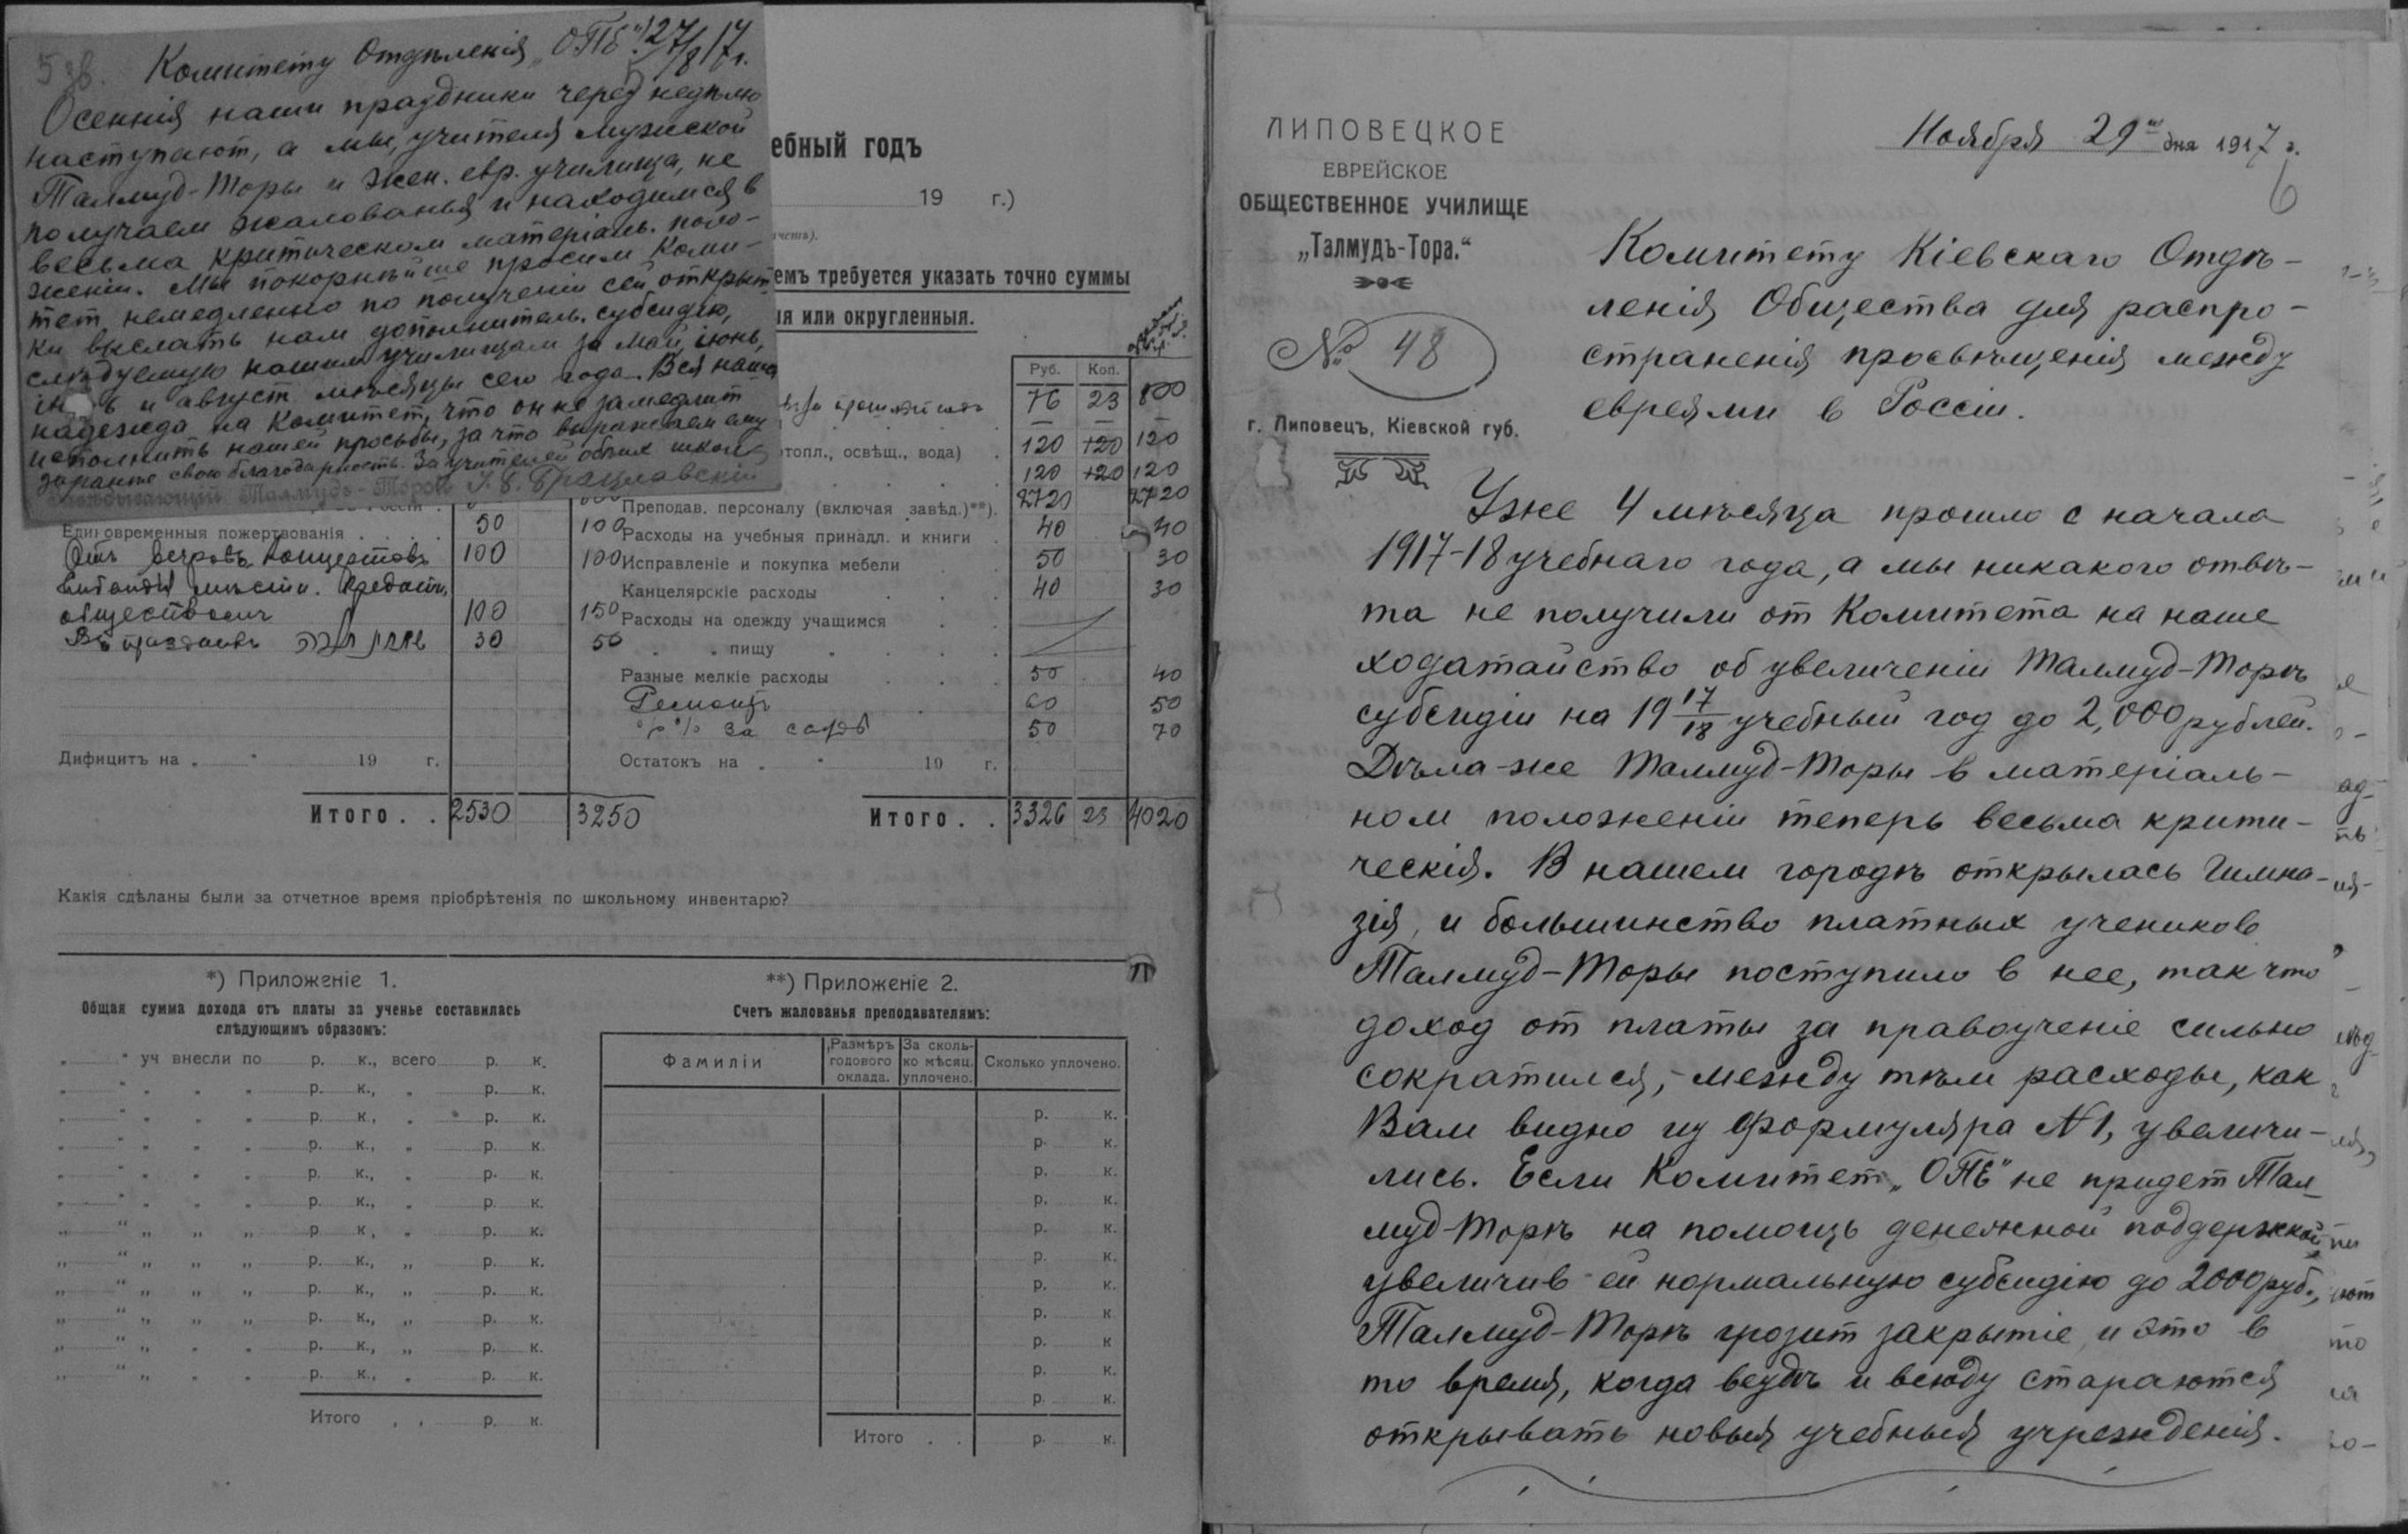 5 зв.
Комитету Отдѣленія „ОПЕ“ 27/8 17 г.
Осеннія наши праздники через недѣлю
наступают, а мы, учителя мужской
Талмуд-Торы и жен. евр. училища, не
получаем жалованья и находимся в
весьма критическом матеріаль. поло-
женіи. Мы покорнѣйше просим Коми-
тет немедленно по полученіи сей открыт
ки выслать нам дополнитель. субсидію,
слѣдуемую нашим училищам за май, іюнь,
и август мѣсяцы сего года. Вся наша
надежда на Комитет, что он не замедлит
исполнить нашей просьбы, за что выражаем ему
заранѣе свою благодарность. За учителей обѣих школ
Завѣдывающій Талмуд-Торой Брацлавскій
ебный годъ
19 г.)
емъ требуется указать точно суммы
ія или округленныя.
Руб. Коп.
76 23 800
топл., освѣщ., вода) 120 +20 120
120 +20 120
Преподав. персоналу (включая завѣд.)**). 2720 2720
Единовременныя пожертвованія 50 100
Расходы на учебныя принадл. и книги 40 40
Отъ вечровъ концертовъ 100 100
Исправленіе и покупка мебели 50 30
мѣстн. Кредатн.
Канцелярскіе расходы 40 30
обществомъ 100 150
Расходы на одежду учащимся
Въ 30 50
„ „ пищу
Разные мелкіе расходы 50 40
Ремонтъ 60 50
% % за 50 70
Дифицитъ на 19 г.
Остатокъ на 19 г.
Итого . . 2530 3250
Итого . . 3326 23 4020
Какія сдѣланы были за отчетное время пріобрѣтенія по школьному инвентарю?
*) Приложеніе 1.
Общая сумма дохода отъ платы за ученье составилась
слѣдующимъ образомъ:
„ “ уч внесли по р. к., всего р. к.
„ “ „ „ „ р. к., „ р. к.
„ “ „ „ „ р. к., „ р. к.
„ “ „ „ „ р. к., „ р. к.
„ “ „ „ „ р. к., „ р. к.
„ “ „ „ „ р. к., „ р. к.
„ “ „ „ „ р. к., „ р. к.
„ “ „ „ „ р. к., „ р. к.
„ “ „ „ „ р. к., „ р. к.
„ “ „ „ „ р. к., „ р. к.
„ “ „ „ „ р. к., „ р. к.
„ “ „ „ „ р. к., „ р. к.
Итого р. к.
**) Приложеніе 2.
Счетъ жалованья преподавателямъ:
Фамиліи
Размѣръ годового оклада.
За сколь-ко мѣсяц. уплочено.
Сколько уплочено.
р. к.
р. к.
р. к.
р. к.
р. к.
р. к.
р. к.
р. к
р. к
р. к.
р. к.
Итого . . р. к.
ЛИПОВЕЦКОЕ
ЕВРЕЙСКОЕ
ОБЩЕСТВЕННОЕ УЧИЛИЩЕ
„Талмудъ-Тора.“
№ 48
г. Липовецъ, Кіевской губ.
Ноября 29го дня 1917 г.
6
Комитету Кіевскаго Отдѣ-
ленія Общества для распро-
страненія просвѣщенія между
евреями в Россіи.
Уже 4 мѣсяца прошло с начала
1917-18 учебнаго года, а мы никакого отвѣ-
та не получили от Комитета на наше
ходатайство об увеличеніи Талмуд-Торѣ
субсидіи на 19 17/18 учебный год до 2,000 рублей.
Дѣла-же Талмуд-Торы в матеріаль-
ном положеніи теперь весьма крити-
ческія. В нашем городѣ открылась Гимна-
зія, и большинство платных учеников
Талмуд-Торы поступило в нее, так что
доход от платы за правоученіе сильно
сократился, - между тѣм расходы, как
Вам видно из формуляра №1, увеличи-
лись. Если Комитет „ОПЕ“ не придет Тал-
муд-Торѣ на помощь денежной поддержкой
увеличив ей нормальную субсидію до 2000 руб.,
Талмуд-Торѣ грозит закрытіе, и это в
то время, когда вездѣ и всюду стараются
открывать новыя учебныя учрежденія.